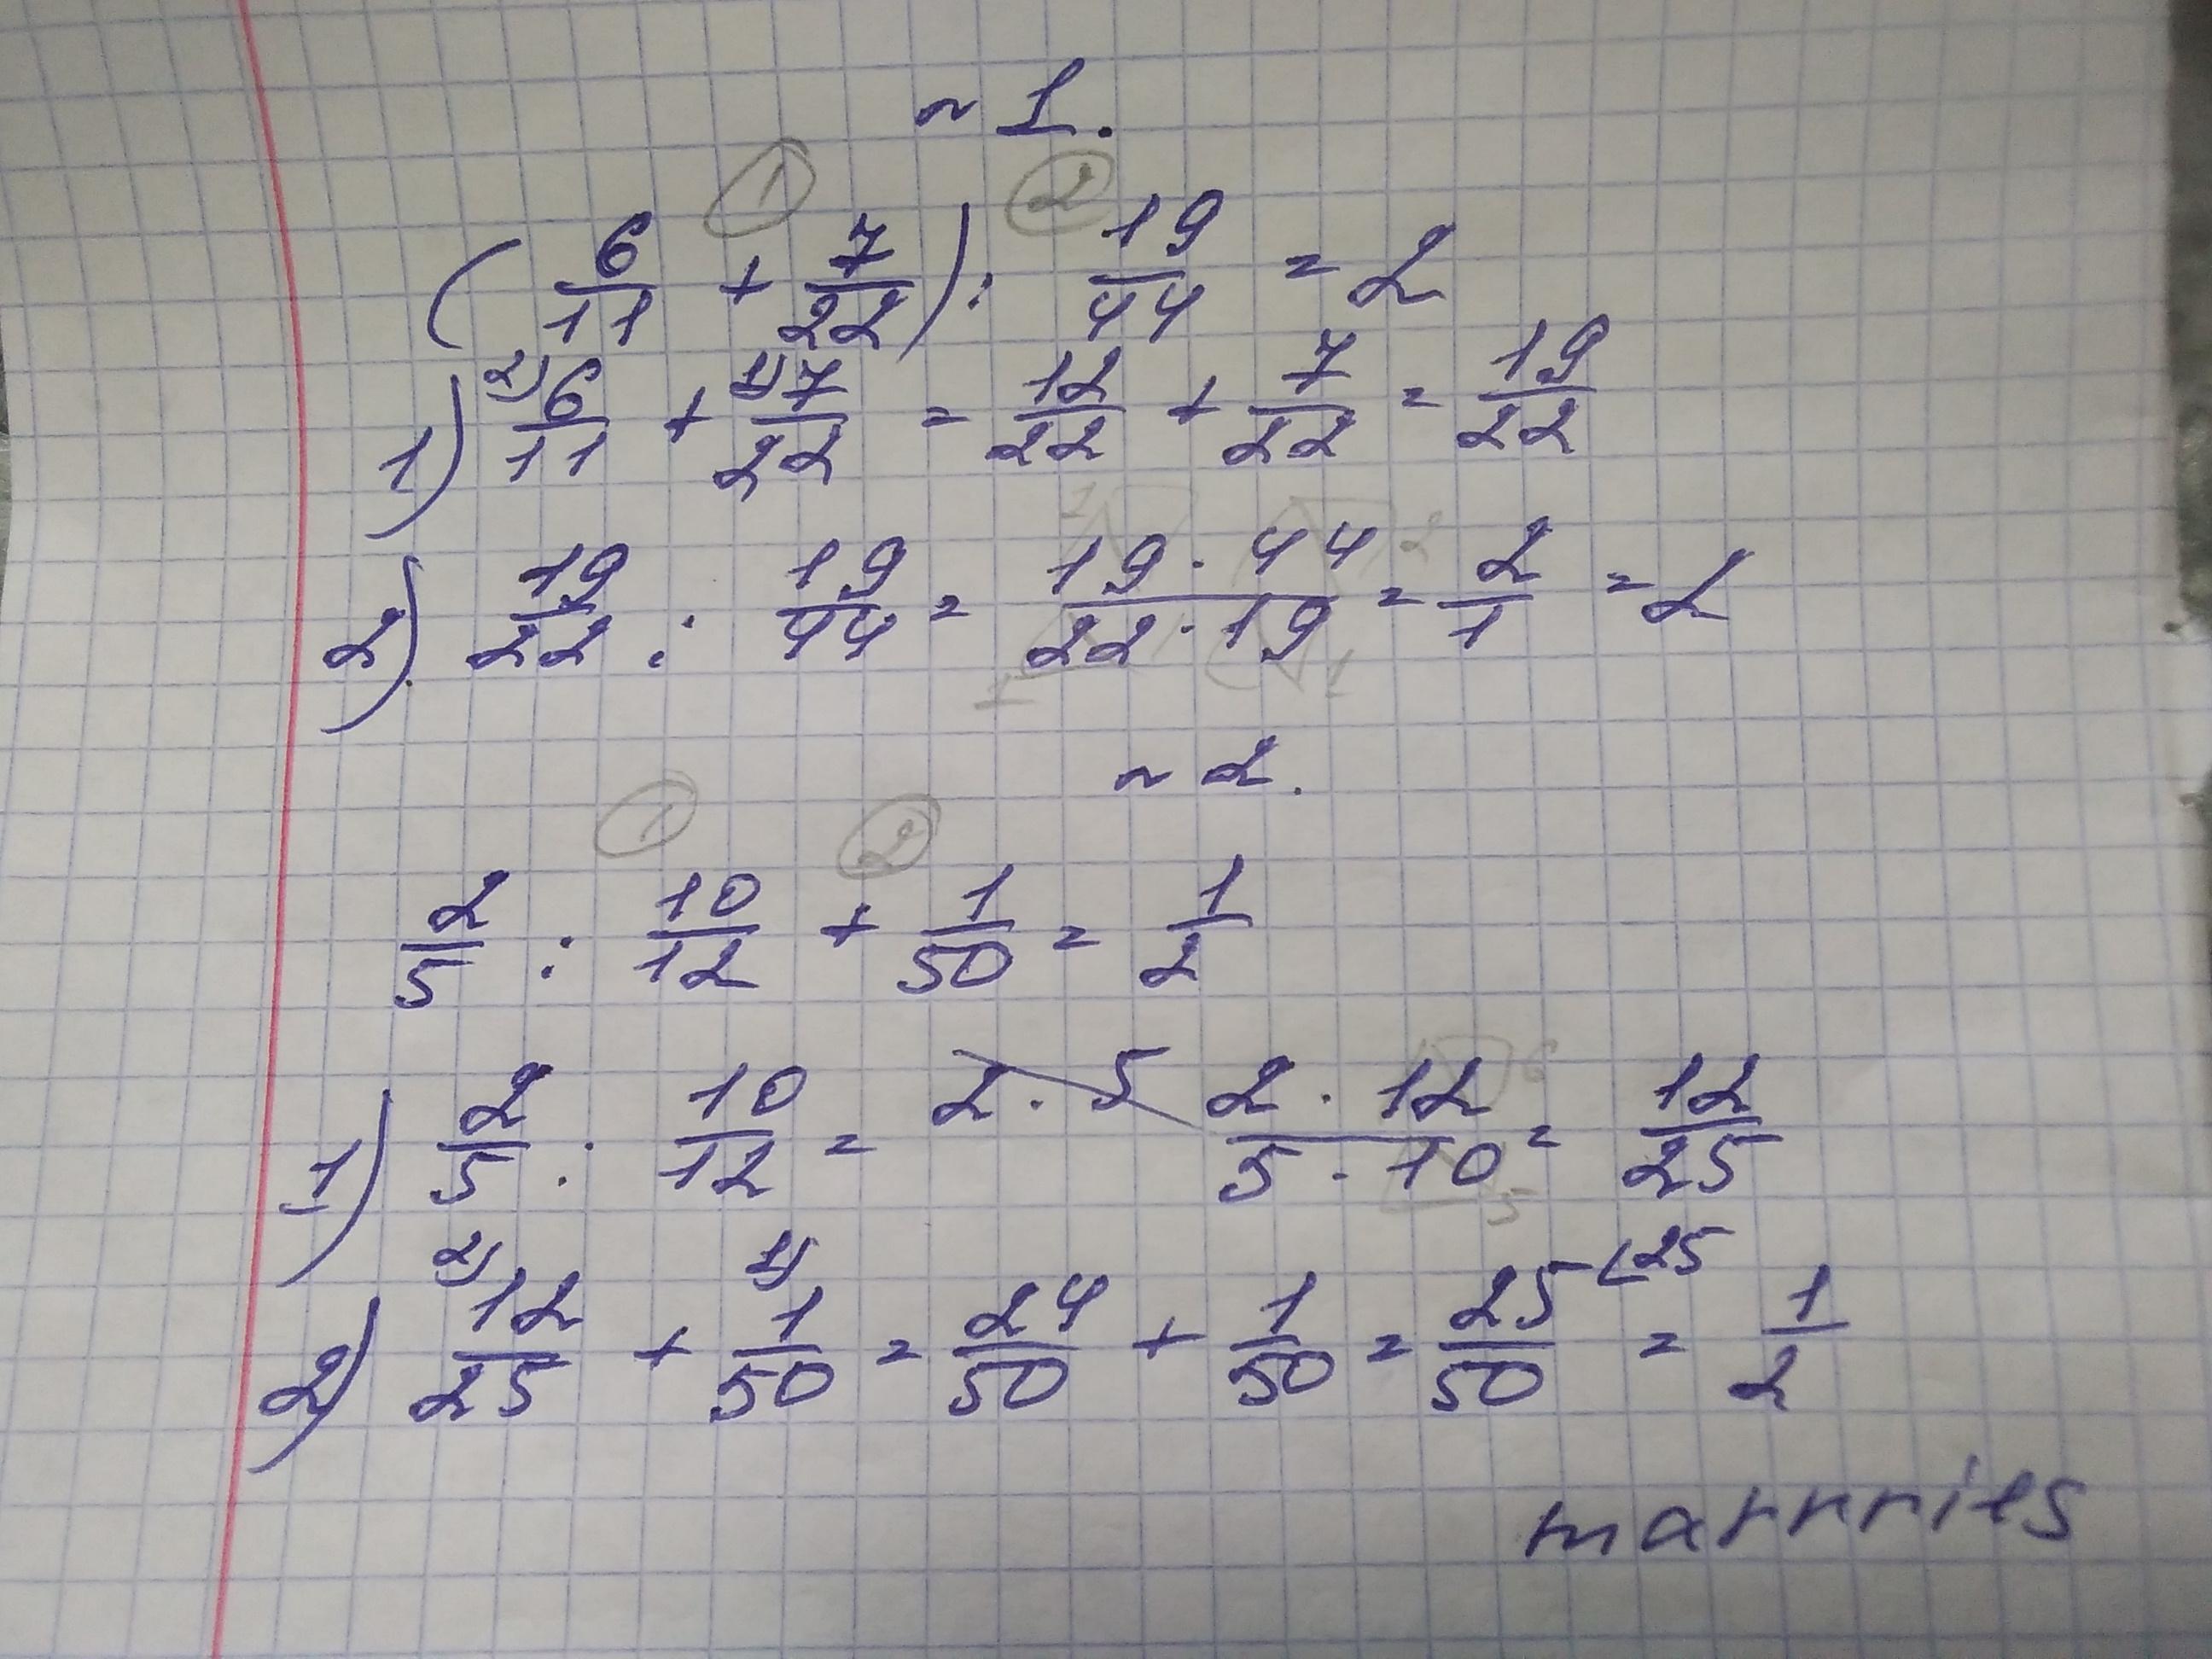 ~ 1.
① ②
( 6/11 + 7/22 ) : 19/44 = 2
1) 2) 6/11 + 1) 7/22 = 12/22 + 7/22 = 19/22
2) 19/22 : 19/44 = 19 · 44 / 22 · 19 = 2/1 = 2
~ 2.
① ②
2/5 : 10/12 + 1/50 = 1/2
1) 2/5 : 10/12 = 2 · 5 2 · 12 / 5 · 10 = 12/25
2) 2) 12/25 + 1) 1/50 = 24/50 + 1/50 = 25/50 (25 = 1/2